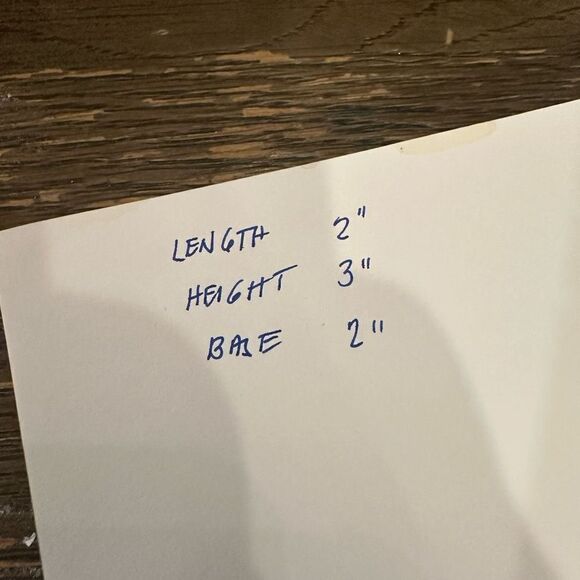 LENGTH 2"
HEIGHT 3"
BASE 2"